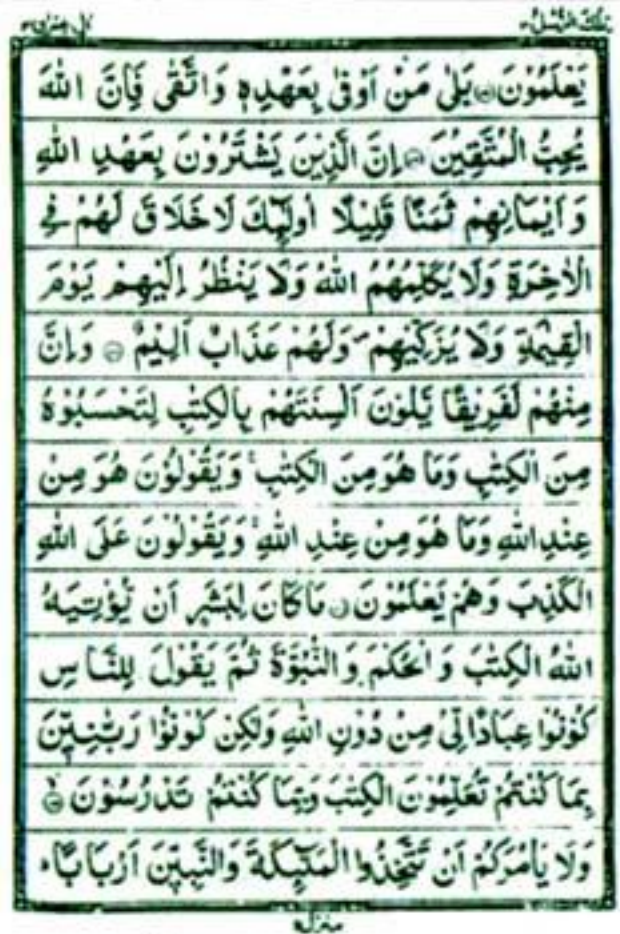 تلك الرسل ۳
ال عمران ۳
يَعْلَمُوْنَ ۞ بَلٰى مَنْ اَوْفٰى بِعَهْدِهٖ وَاتَّقٰى فَاِنَّ اللّٰهَ
يُحِبُّ الْمُتَّقِيْنَ ۞ اِنَّ الَّذِيْنَ يَشْتَرُوْنَ بِعَهْدِ اللّٰهِ
وَاَيْمَانِهِمْ ثَمَنًا قَلِيْلًا اُولٰٓئِكَ لَا خَلَاقَ لَهُمْ فِى
الْاٰخِرَةِ وَلَا يُكَلِّمُهُمُ اللّٰهُ وَلَا يَنْظُرُ اِلَيْهِمْ يَوْمَ
الْقِيٰمَةِ وَلَا يُزَكِّيْهِمْ ۪ وَلَهُمْ عَذَابٌ اَلِيْمٌ ۞ وَاِنَّ
مِنْهُمْ لَفَرِيْقًا يَّلْوٗنَ اَلْسِنَتَهُمْ بِالْكِتٰبِ لِتَحْسَبُوْهُ
مِنَ الْكِتٰبِ وَمَا هُوَ مِنَ الْكِتٰبِ ۚ وَيَقُوْلُوْنَ هُوَ مِنْ
عِنْدِ اللّٰهِ وَمَا هُوَ مِنْ عِنْدِ اللّٰهِ ۚ وَيَقُوْلُوْنَ عَلَى اللّٰهِ
الْكَذِبَ وَهُمْ يَعْلَمُوْنَ ۞ مَا كَانَ لِبَشَرٍ اَنْ يُّؤْتِيَهُ
اللّٰهُ الْكِتٰبَ وَالْحُكْمَ وَالنُّبُوَّةَ ثُمَّ يَقُوْلَ لِلنَّاسِ
كُوْنُوْا عِبَادًا لِّىْ مِنْ دُوْنِ اللّٰهِ وَلٰكِنْ كُوْنُوْا رَبّٰنِيّٖنَ
بِمَا كُنْتُمْ تُعَلِّمُوْنَ الْكِتٰبَ وَبِمَا كُنْتُمْ تَدْرُسُوْنَ ۞
وَلَا يَاْمُرَكُمْ اَنْ تَتَّخِذُوا الْمَلٰٓئِكَةَ وَالنَّبِيّٖنَ اَرْبَابًا ؕ